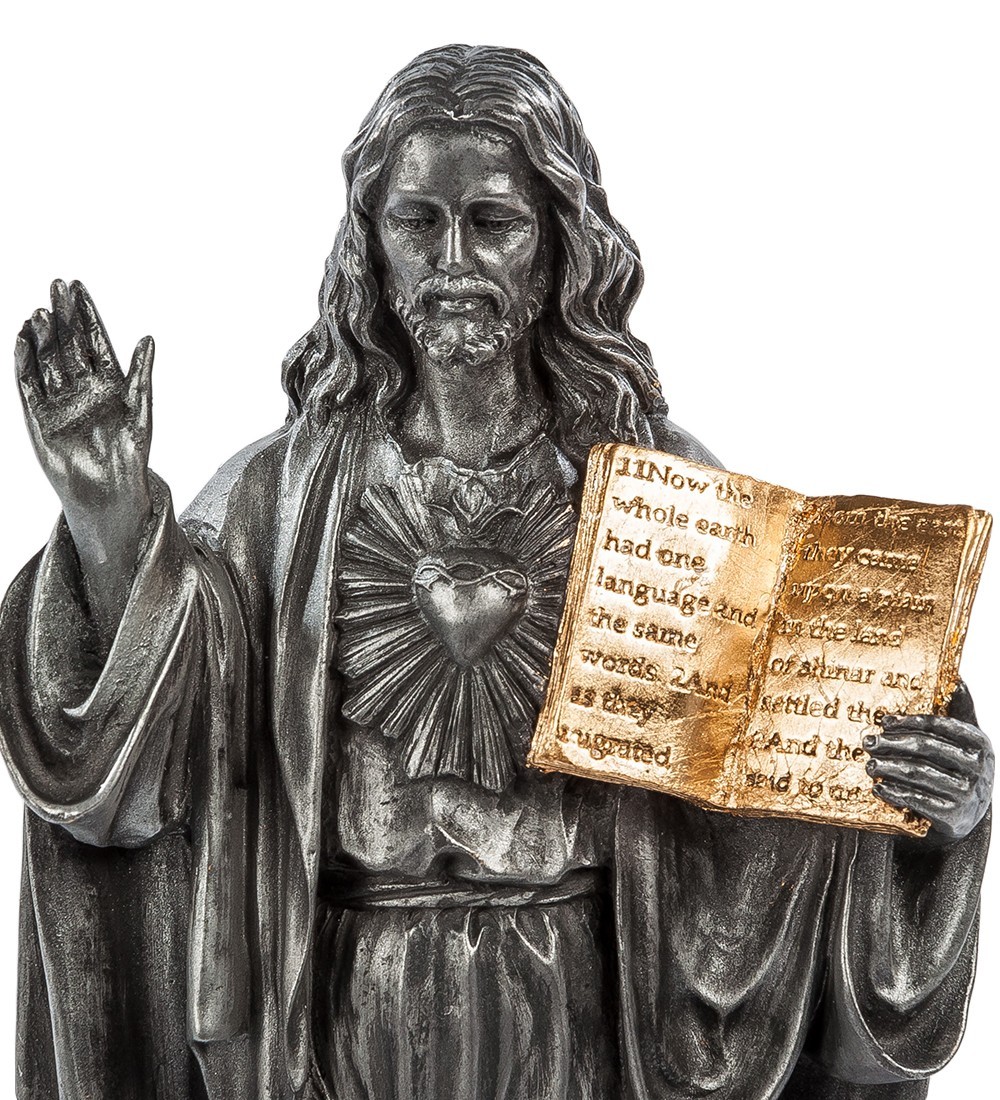 11Now the
whole earth
had one
language and
the same
words. 2And
as they
migrated
from the east
they came
upon a plain
in the land
of shinar and
settled the
And the
said to